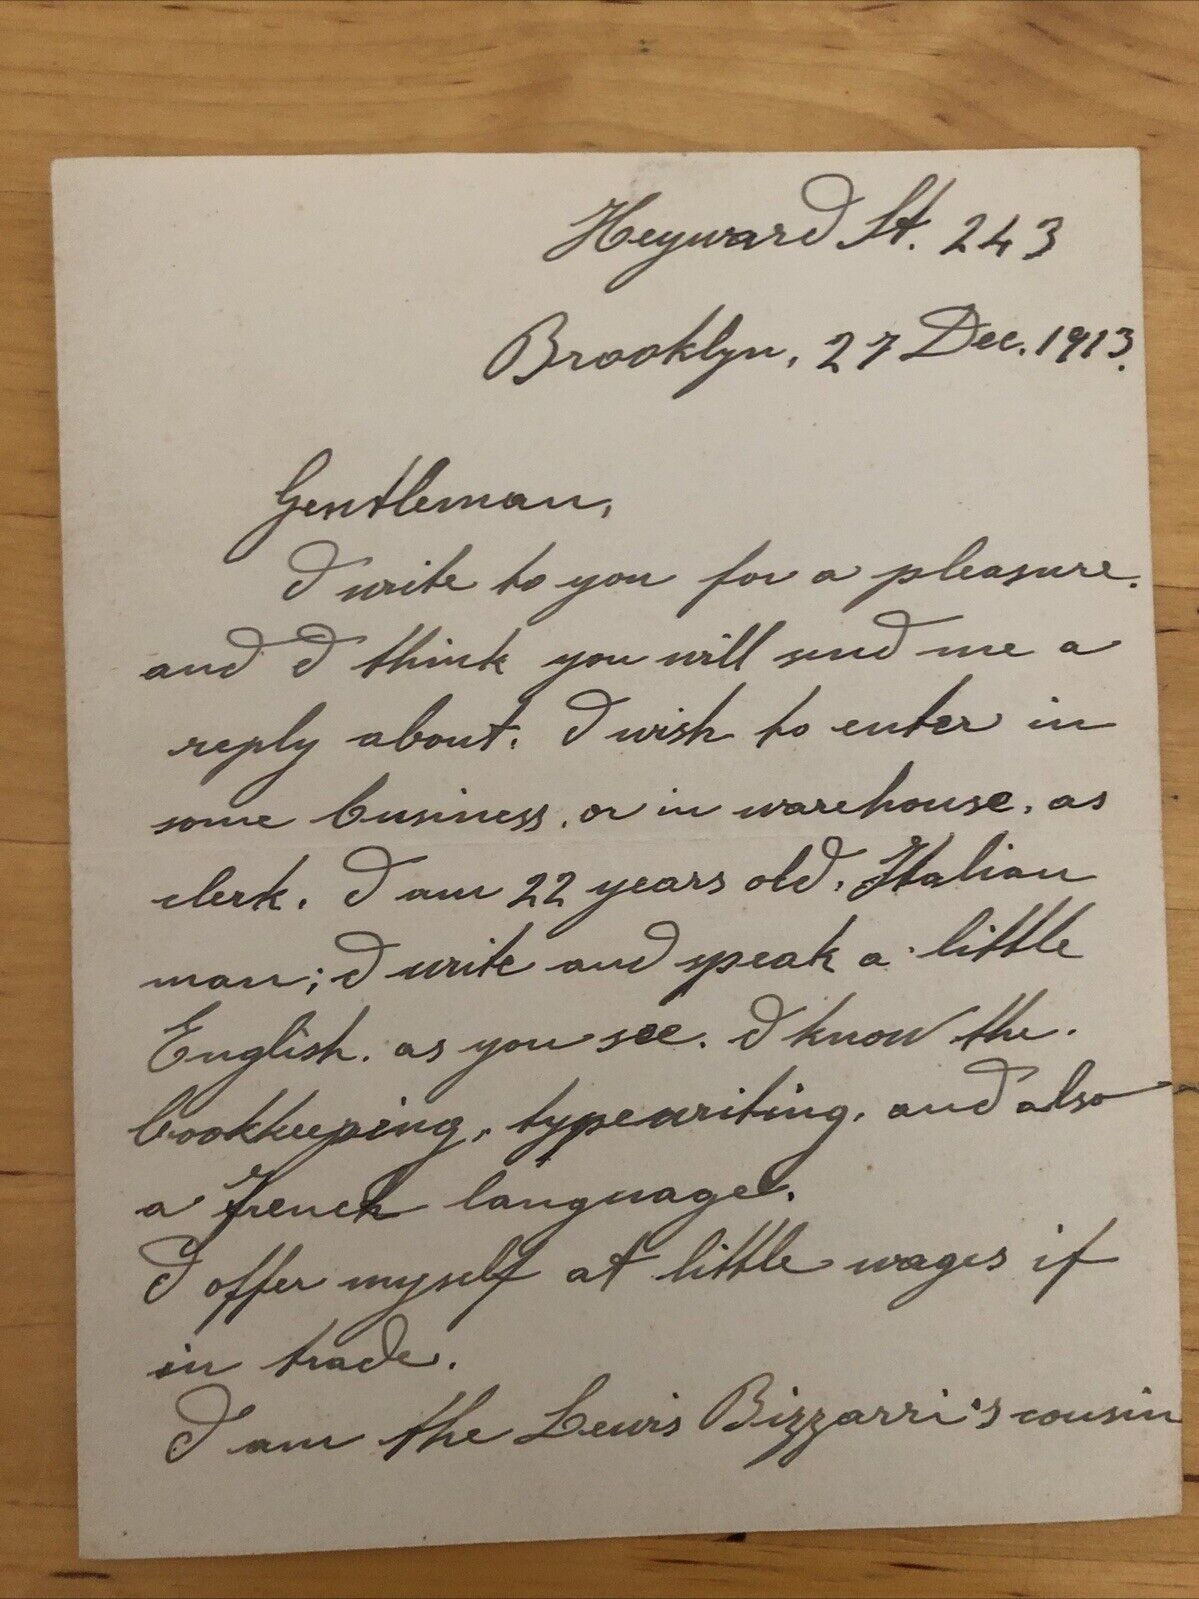 Heyward St. 243
Brooklyn, 27 Dec. 1913.
Gentleman,
I write to you for a pleasure.
and I think you will send me a
reply about. I wish to enter in
some business, or in warehouse, as
clerk. I am 22 years old, Italian
man; I write and speak a little
English. as you see. I know the.
bookkeeping, typewriting, and also
a French language.
I offer myself at little wages if
in trade.
I am the Lewis Bizzarri's cousin